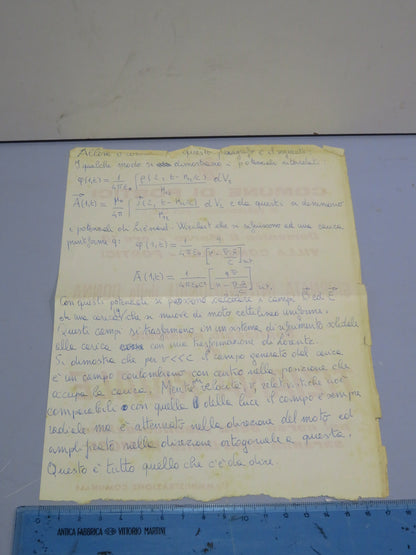 Allora o com questo paragrafo è il seguente:
In qualche modo si dimostrano i potenziali ritardati:
φ(1,t) = 1/4πε₀ ∫ ρ(2, t - r₁₂/c)/r₁₂ dV₂
A(1,t) = μ₀/4π ∫ j(2, t - r₁₂/c)/r₁₂ dV₂ e da questi si desumono
i potenziali di Liénard - Wiechert che si riferiscono ad una carica
puntiforme q: φ(1,t) = 1/4πε₀ q/[r - v·r/c]rit
A(1,t) = 1/4πε₀c² [qv/(r - v·r/c)]rit.
Con questi potenziali si possono calcolare i campi B ed E
di una carica che si muove di moto rettilineo uniforme.
Questi campi si trasformano in un sistema di riferimento solidale
alla carica con una trasformazione di Lorentz.
Si dimostra che per v<<c il campo generato dalla carica
è un campo coulombiano con centro nella posizione che
occupa la carica. Mentre velocità relativistiche cioè
comparabili con quella della luce il campo è sempre
radiale ma è attenuato nella direzione del moto ed
amplificato nella direzione ortogonale a questa.
Questo è tutto quello che c'è da dire.
AMMINISTRAZIONE COMUNALE
0 1 2 3 4 5 6 7 8 9 10 11 12 13 14 15 16 17 18 19 20
ANTICA FABBRICA VITTORIO MARTINI